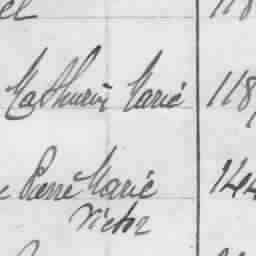 el 118
Mathurin Marie 118
Pierre Marie 144
Victor